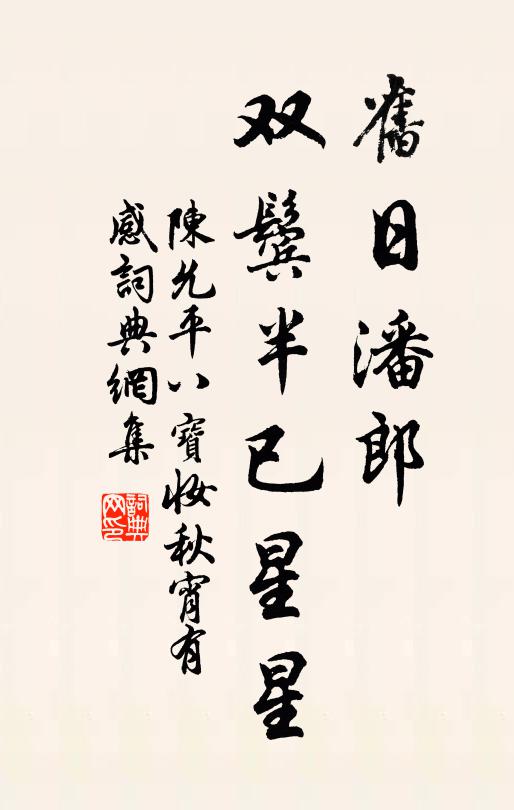 舊日潘郎
双鬓半已星星
陳允平八寶妝秋宵有
感詞典網集
詞典
网印